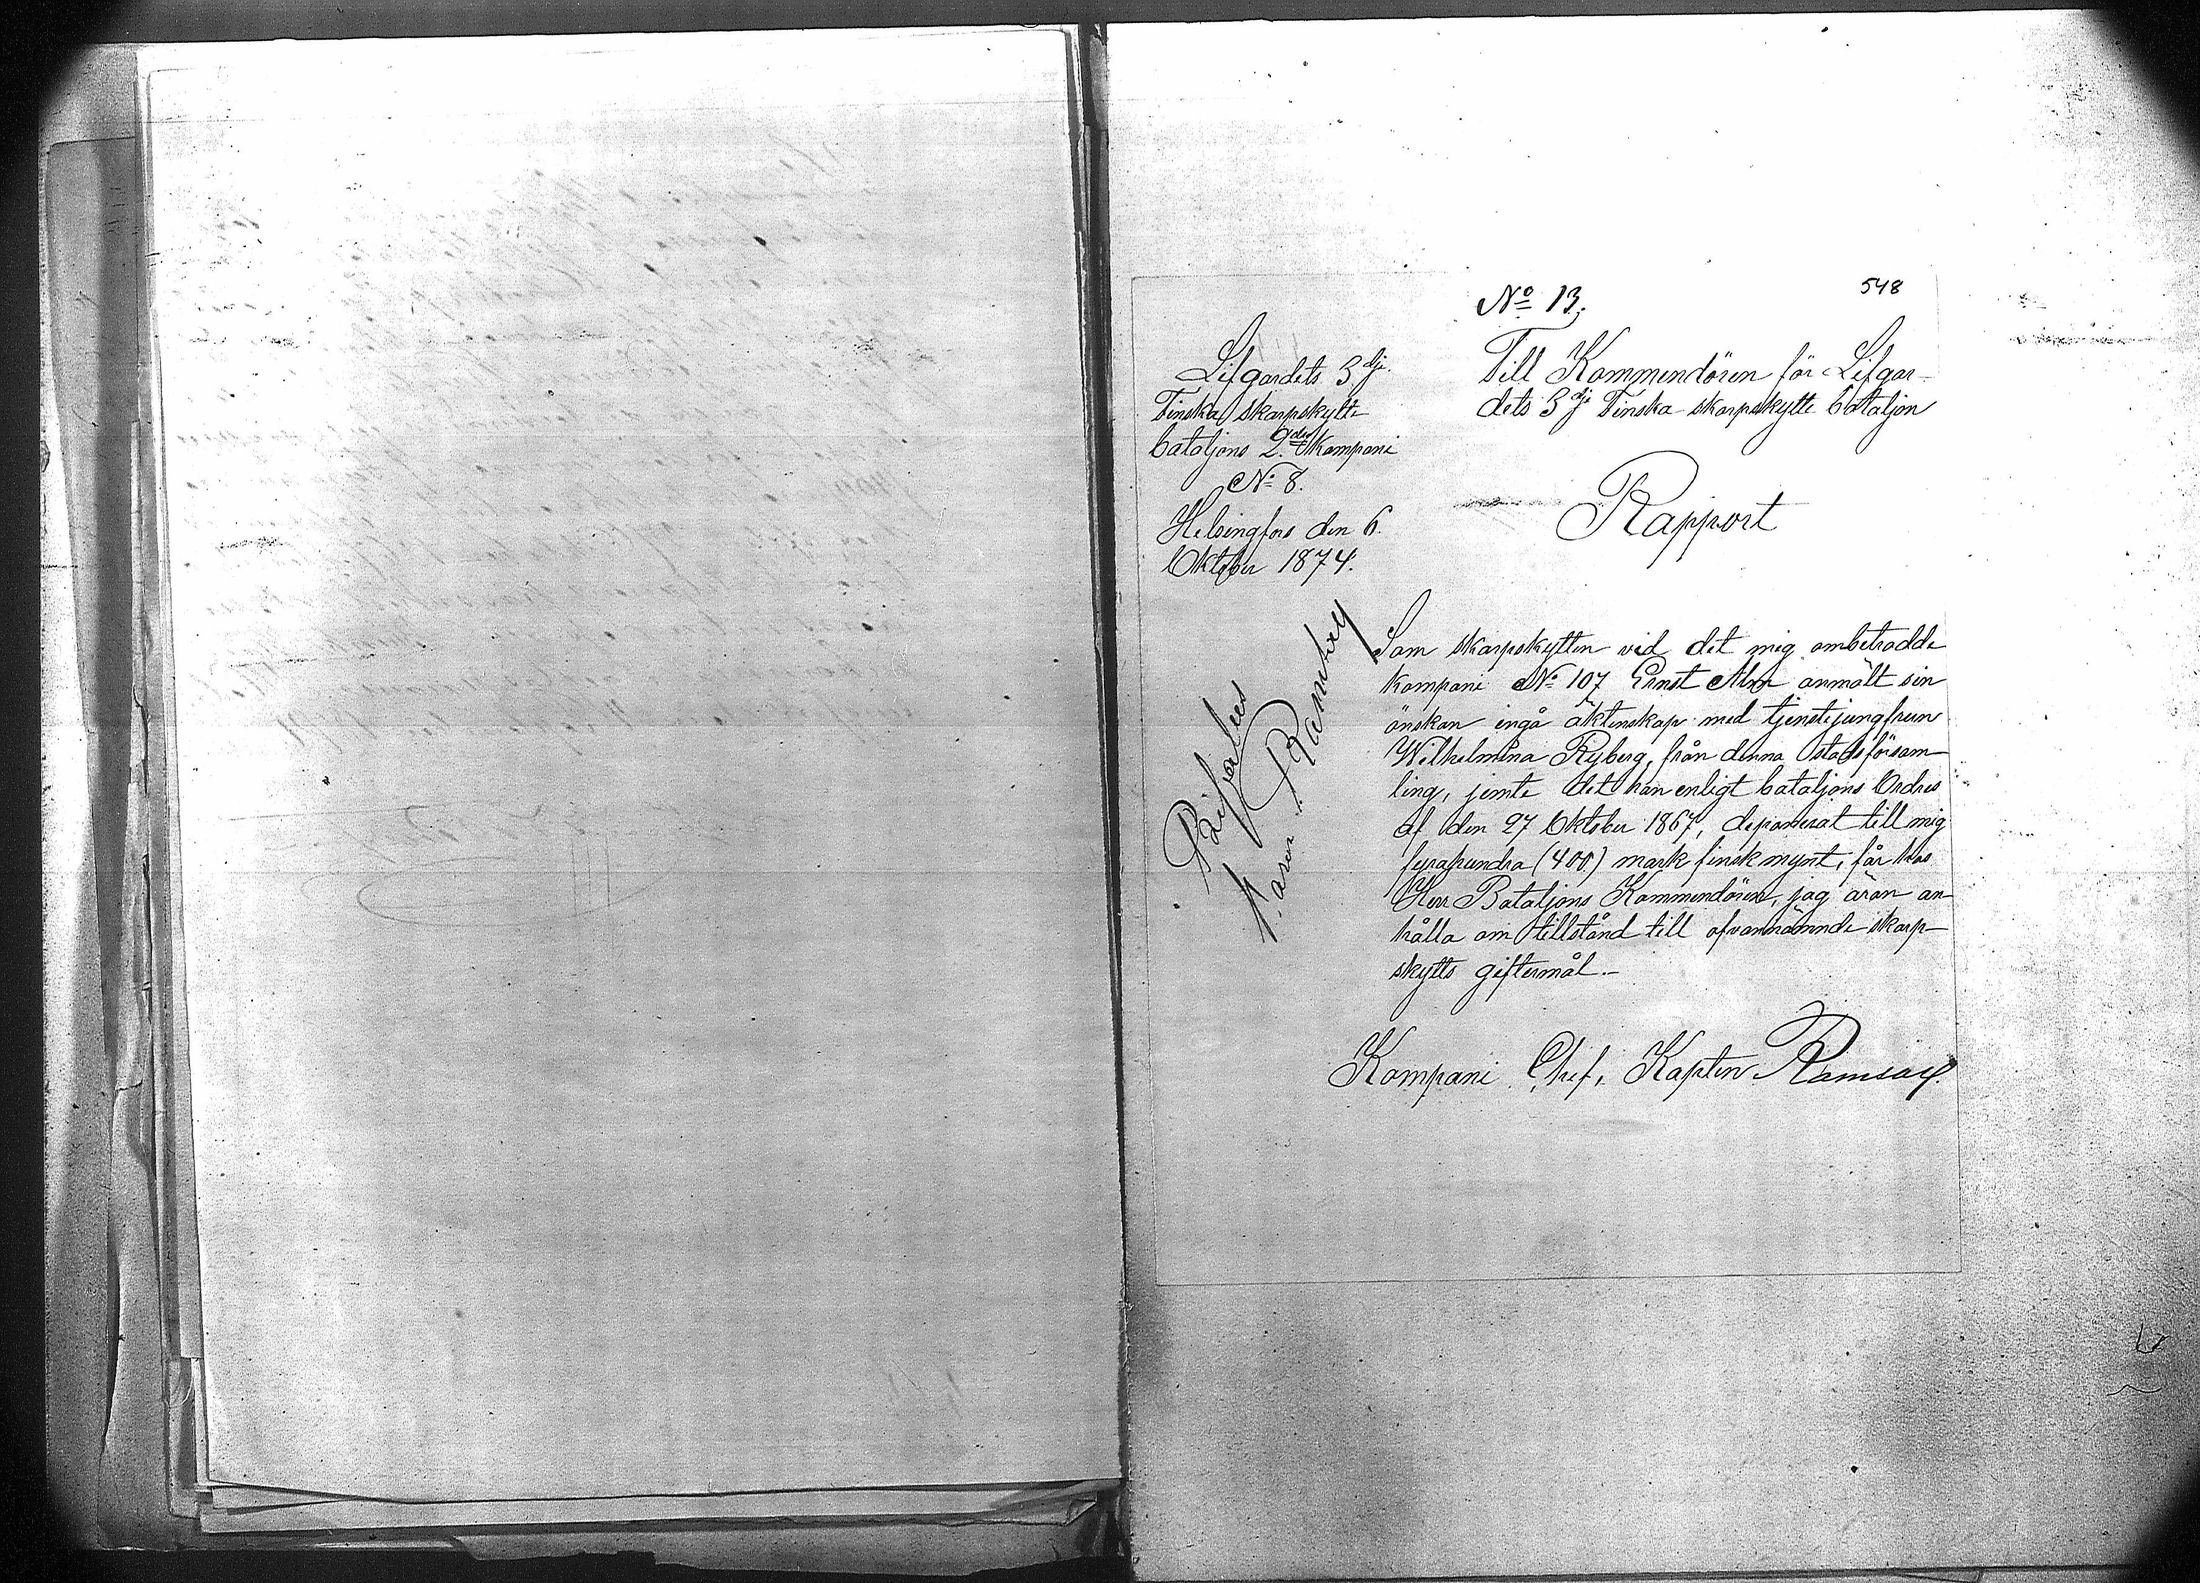 No 13.
548
Lifgardets 3dje
Finska skarpskytte
bataljons 2dra Kompani
No 8.
Helsingfors den 6.
Oktober 1874.
Till Kommendören för Lifgar-
dets 3dje Finska skarpskytte bataljon
Rapport
Som skarpskytten vid det mig ombetrodde
kompani No 107 Ernst Alm anmält sin
önskan ingå äktenskap med tjenstejungfrun
Wilhelmina Ryberg, från denna stadsförsam-
ling, jemte det han enligt bataljons Ordres
af den 27 Oktober 1867, deponerat till mig
fyrahundra (400) mark finsk mynt, får hos
Herr Bataljons Kommendören, jag äran an-
hålla om tillstånd till ofvannämnde skarp-
skytts giftermål.-
Kompani Chef, Kapten Ramsay.
Bifalles
Ramsay